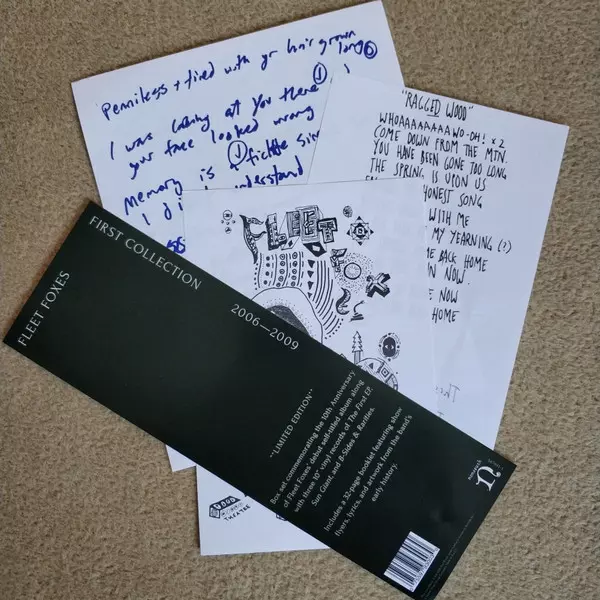 Penniless + tired with yr hair grown long
I was looking at you there
your face looked wrong
memory is a fickle
I
understand
"RAGGED WOOD"
WHOAAAAAAAWO-OH! x 2
COME DOWN FROM THE MTN.
YOU HAVE BEEN GONE TOO LONG
THE SPRING IS UPON US
HONEST SONG
WITH ME
MY YEARNING (?)
BACK HOME
NOW.
NOW
HOME
FLEET
FOX
THEATRE
FLEET FOXES
FIRST COLLECTION
2006—2009
"LIMITED EDITION"
Box set commemorating the 10th Anniversary
of Fleet Foxes' debut self-titled album along
with three 10" vinyl records of The First EP,
Sun Giant, and B-Sides & Rarities.
Includes a 32-page booklet featuring show
flyers, lyrics, and artwork from the band's
early history.
nonesuch
n